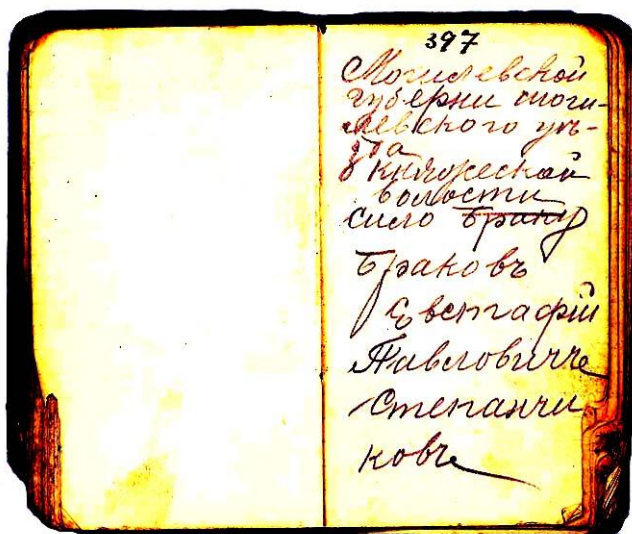 397
Могилевской
губерни моги-
левского уѣ-
зда
Княжеской
волости
сило Браку
Браковъ
Евстафій
Павловичъ
Степанчи
ковъ